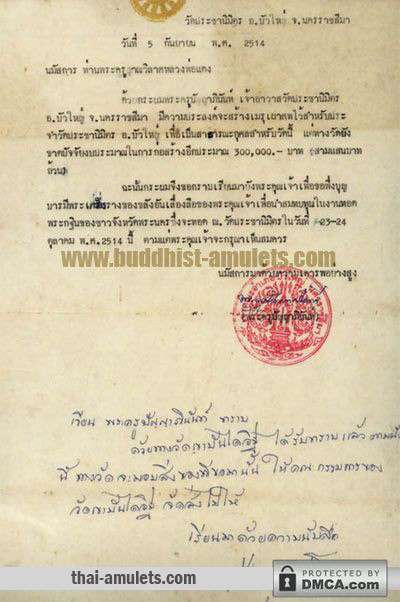 วัดประชานิมิตร อ.บัวใหญ่ จ.นครราชสีมา
วันที่ 5 กันยายน พ.ศ. 2514
นมัสการ ท่านพระครูญาณวิลาศหลวงพ่อแดง
ด้วยกระผมพระครูบัญญาภินันท์ เจ้าอาวาสวัดประชานิมิตร
อ.บัวใหญ่ จ.นครราชสีมา มีความประสงค์จะสร้างเมรุเผาศพไว้สำหรับประ
จำวัดประชานิมิตร อ.บัวใหญ่ เพื่อเป็นสาธารณะกุศลสำหรับวัดนี้ แต่ทางวัดยัง
ขาดปัจจัยงบประมาณในการก่อสร้างอีกประมาณ 300,000.- บาท (สามแสนบาท
ถ้วน)
ฉะนั้นกระผมจึงขอกราบเรียนมายังพระคุณเจ้าเพื่อขอพึ่งบุญ
บารมีพระเครื่องรางของขลังอันเลื่องลือของพระคุณเจ้าเพื่อนำสมทบทุนในงานทอด
พระกฐินของชาวจังหวัดพระนครซึ่งจะทอด ณ.วัดประชานิมิตรในวันที่ 23-24
ตุลาคม พ.ศ.2514 นี้ ตามแต่พระคุณเจ้าจะกรุณาเห็นสมควร
www.buddhist-amulets.com
นมัสการมาด้วยความเคารพอย่างสูง
เรียน พระครูปัญญาภินันท์ ทราบ
ด้วยทางวัดเขาบันไดอิฐ ได้รับทราบแล้ว
นี้ ทางวัดจะมอบสิ่งของที่ขอมานั้น ให้คณะกรรมการของ
วัดเขาบันไดอิฐ จัดส่งไปให้
เรียนมาด้วยความนับถือ
thai-amulets.com
PROTECTED BY
DMCA.com